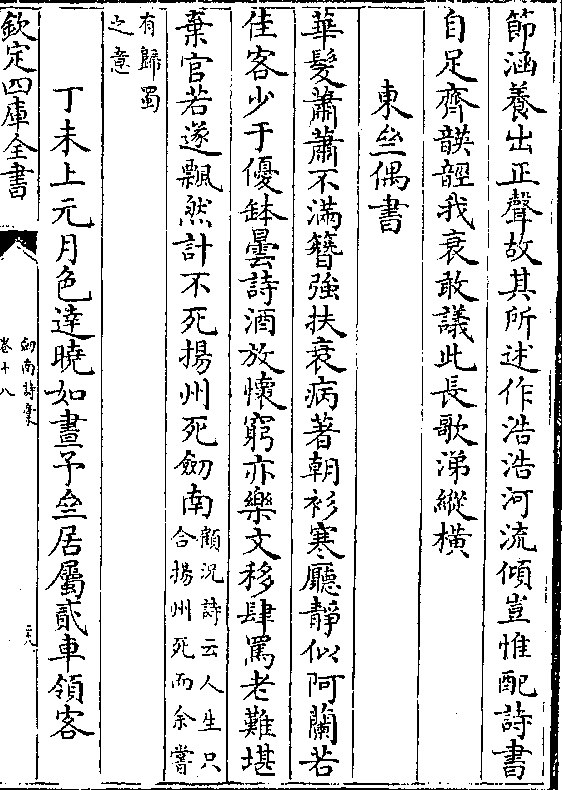 節涵養出正聲故其所述作浩浩河流傾豈惟配詩書
自足齊韺䪫我衰敢議此長歌涕縱横
東齋偶書
華髮蕭蕭不滿簪強扶衰病著朝衫寒廳静似阿蘭若
佳客少于優鉢曇詩酒放懷窮亦樂文移肆罵老難堪
棄官若遂飄然計不死揚州死劒南
顧況詩云人生只
合揚州死而余嘗
有歸蜀
之意
丁未上元月色達曉如晝予齋居屬貳車領客
欽定四庫全書
劒南詩稾
卷十八
二九